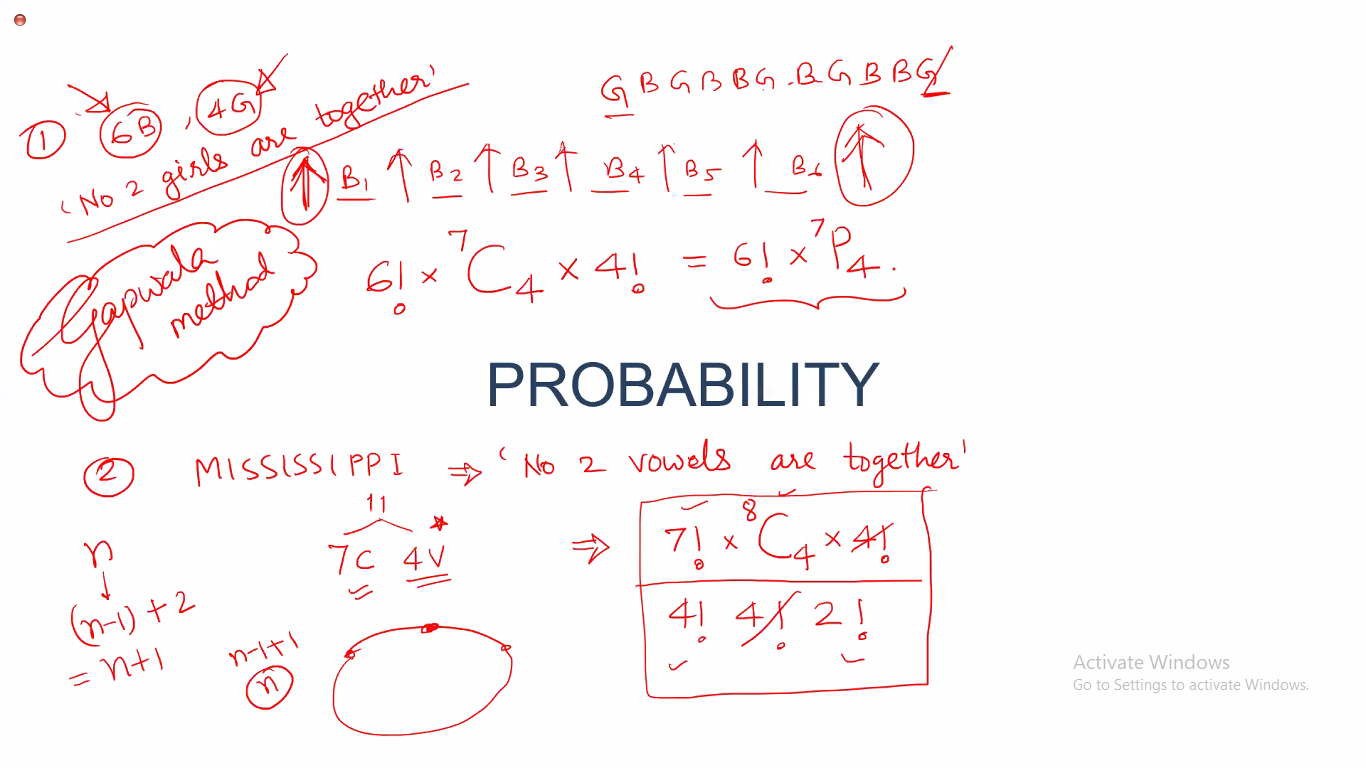 ① 6B , 4G
'No 2 girls are together'
G B G B B G B G B B G
↑ B₁ ↑ B₂ ↑ B₃ ↑ B₄ ↑ B₅ ↑ B₆ ↑
Gapwala
method
6! × ⁷C₄ × 4! = 6! × ⁷P₄.
PROBABILITY
② MISSISSIPPI ⇒ 'No 2 vowels are together'
11
7C 4V
⇒ 7! × ⁸C₄ × 4!
4! 4! 2!
n
↓
(n-1) + 2
= n+1
n-1+1
n
Activate Windows
Go to Settings to activate Windows.